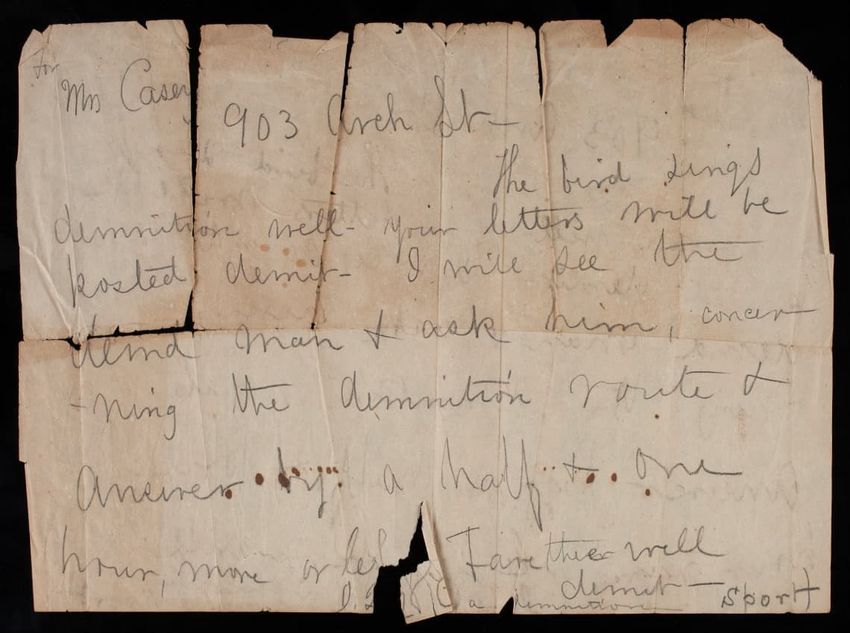 For
Mrs Casey
903 Arch St-
The bird sings
demnition well- your letters will be
posted demit- I will see the
demd man & ask him, concer
-ning the demnition route &
answer by a half & one
hour, more or less Fare thee well
demit-
a demnition Sport